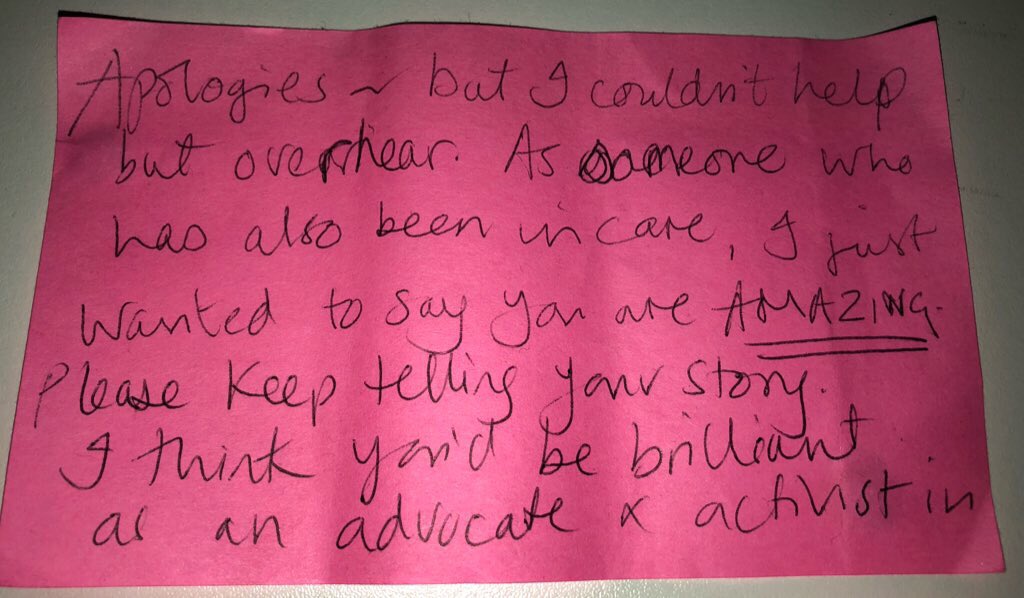 Apologies ~ but I couldn't help
but overhear. As someone who
has also been in care, I just
wanted to say you are AMAZING.
Please keep telling your story.
I think you'd be brilliant
as an advocate & activist in